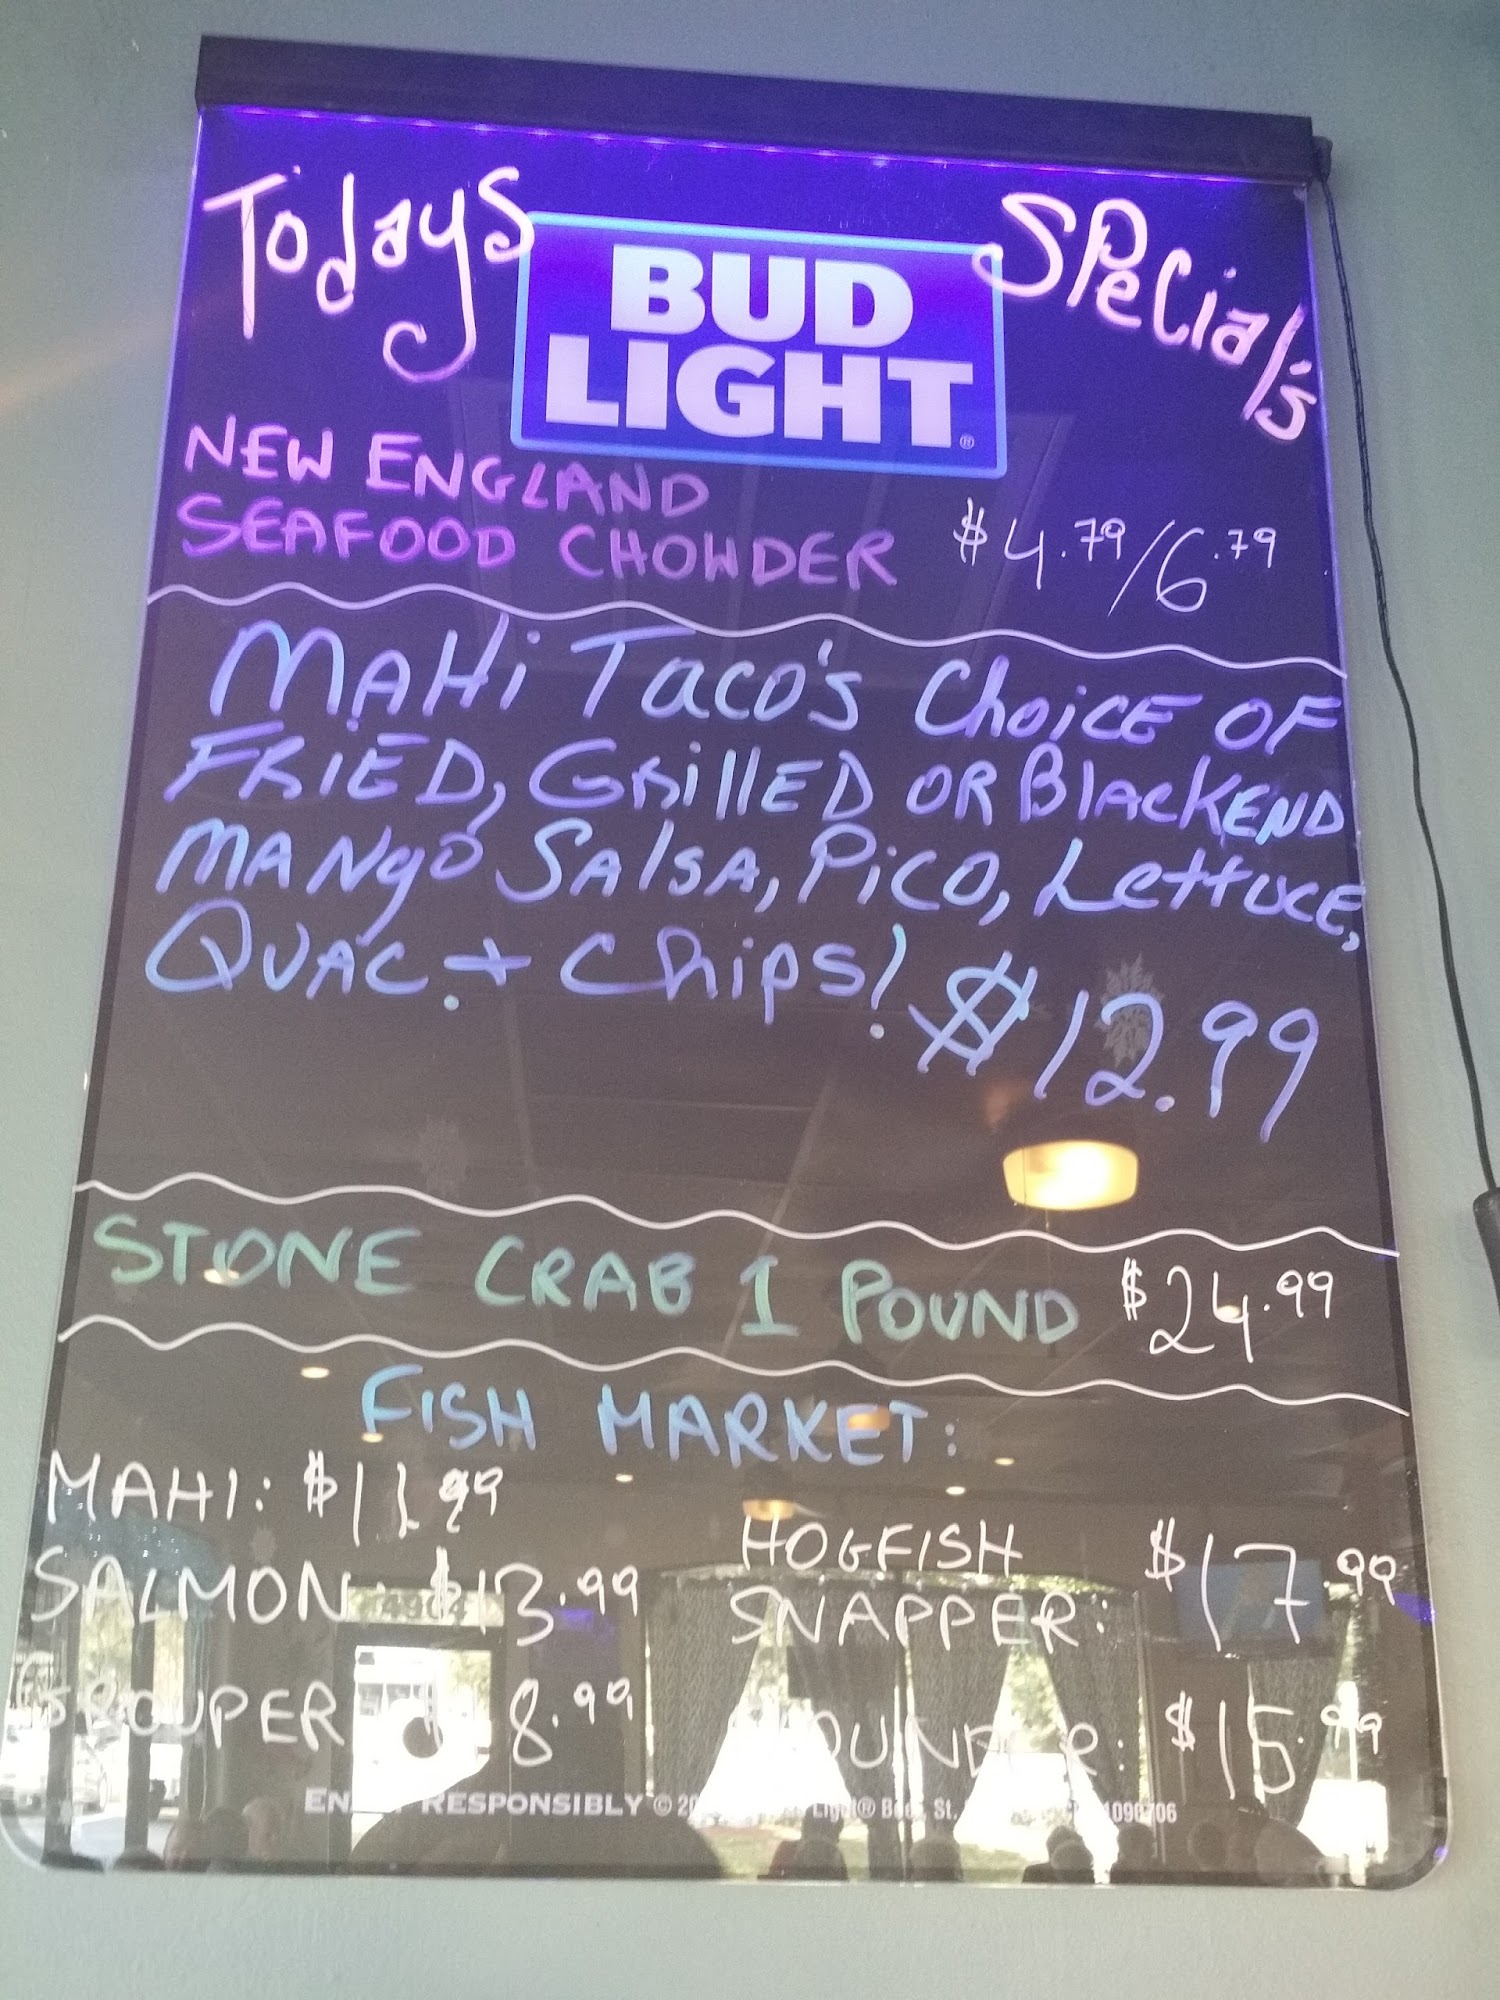 Todays Special's
BUD
LIGHT
NEW ENGLAND
SEAFOOD CHOWDER $4.79/6.79
MAHi Taco's Choice OF
FRIED, GRillED OR BlacKEND
MANgo SAlSA, PiCO, Lettuce,
QUAC. + Chips! $12.99
STONE CRAB 1 POUND $24.99
FISH MARKET:
MAHI: $11.99
SALMON: $13.99
GROUPER 8.99
HOGFISH
SNAPPER: $17.99
$15.99
RESPONSIBLY ©